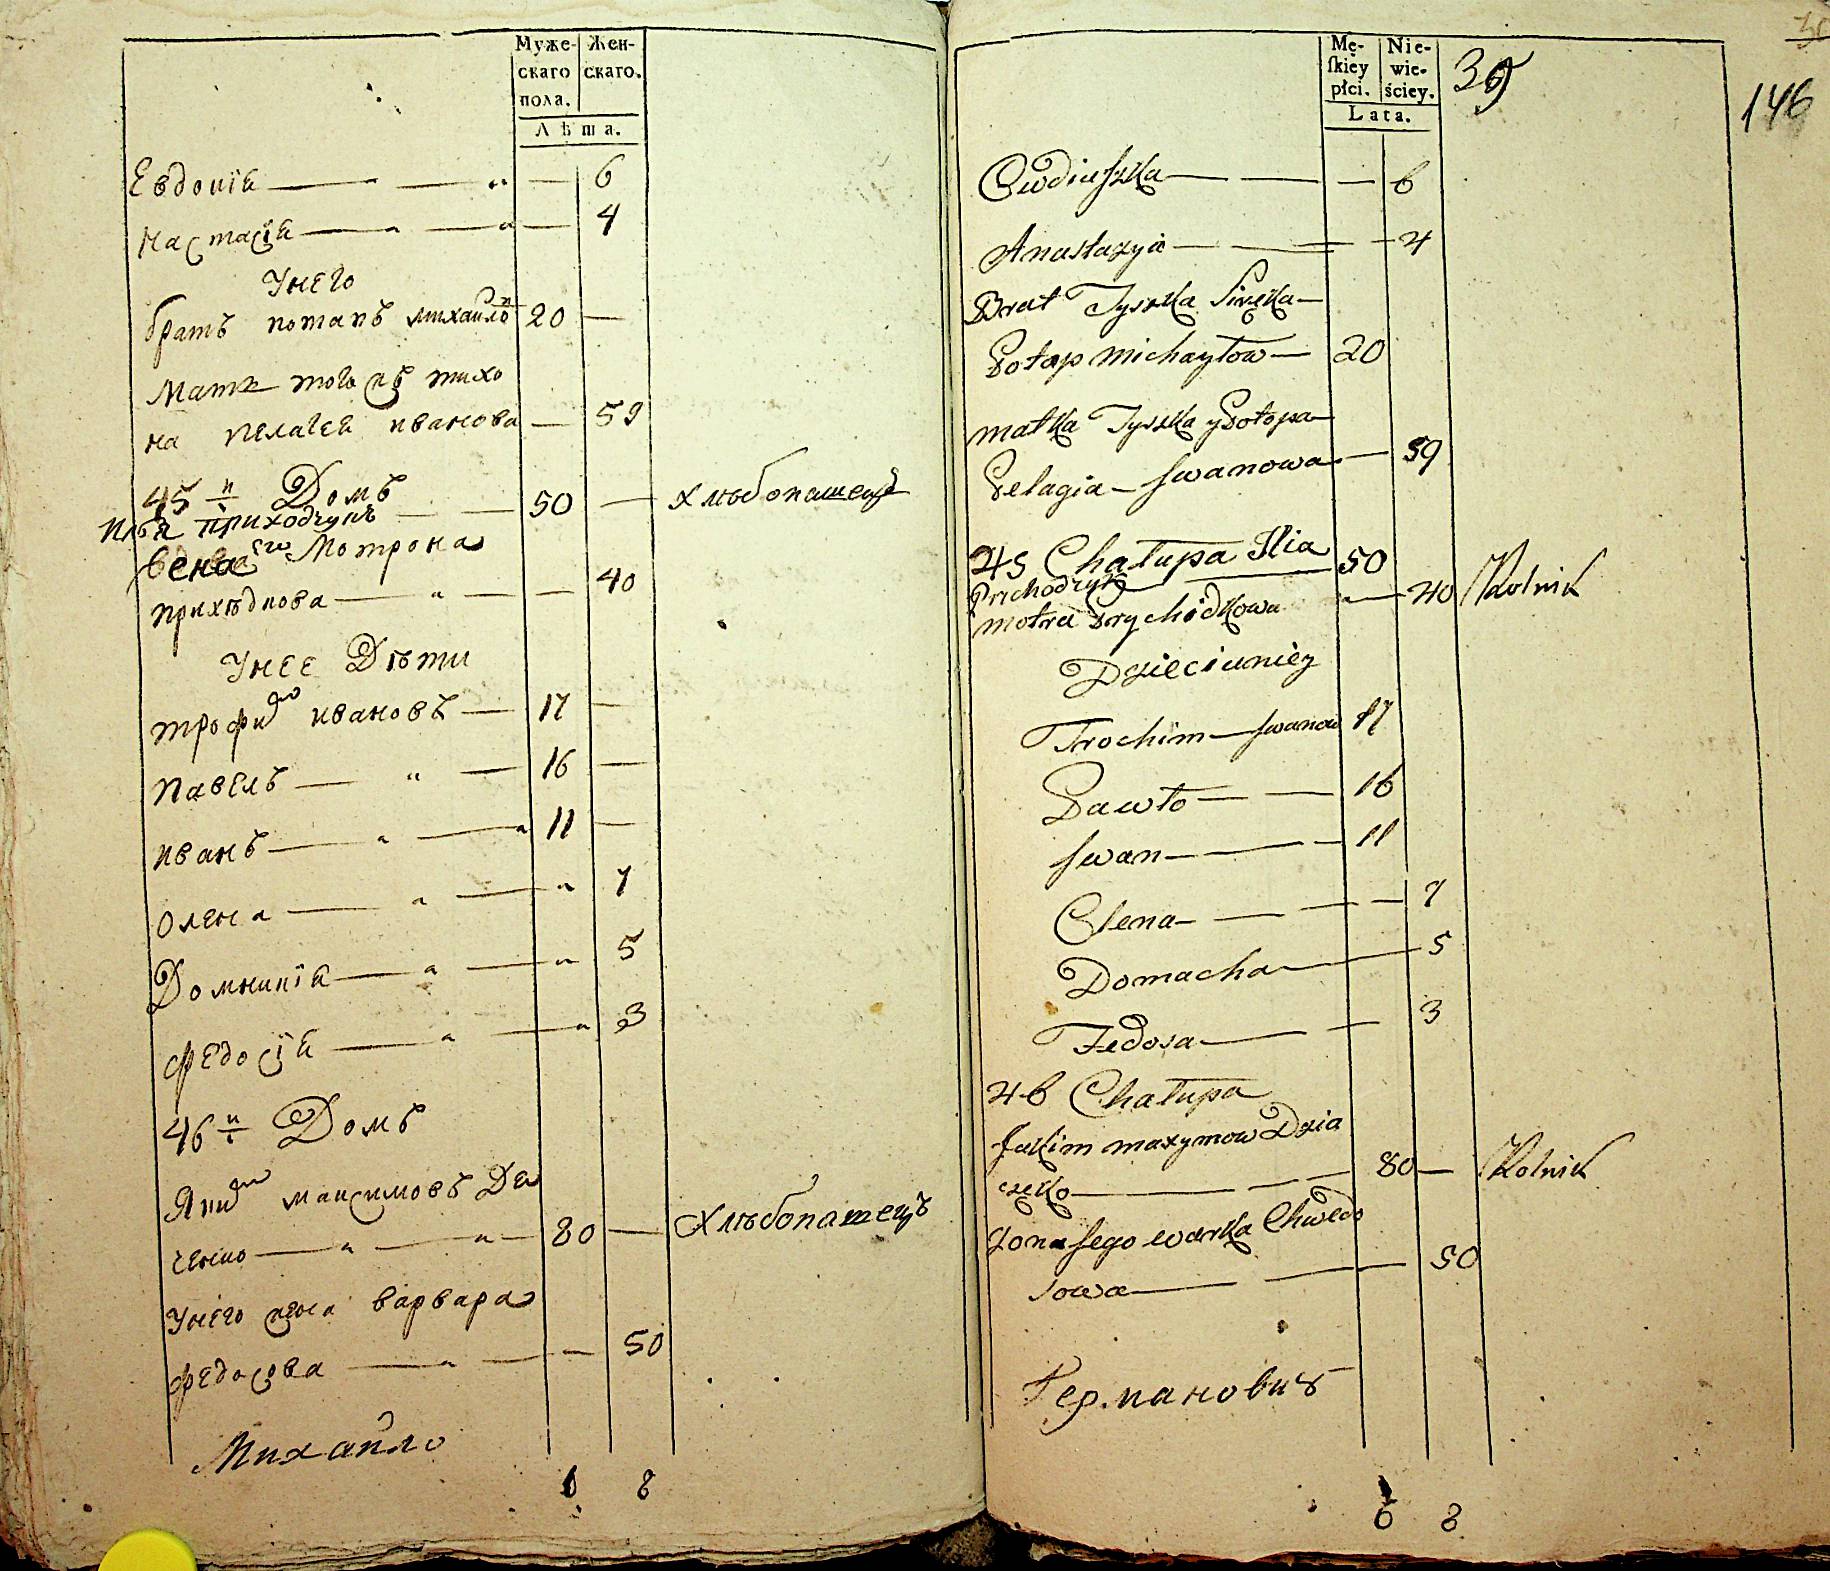 Муже- Жен-
скаго скаго.
пола.
Лѣта.
Евдокія — — 6
Настасія — — 4
У него
братъ потапъ михайловъ 20 —
Мать того пъ тихо
на пелагея иванова — 59
45 й Домъ
Илья приходчукъ — — 50 — хлѣбопашецъ
жена его Мотрона
прихѣдкова — — 40
У нее Дѣти
трофимъ ивановъ — 17 —
павелъ — — 16 —
иванъ — — 11 —
олена — — 7
Домникія — — 5
федосія — — 3
46 й Домъ
Якимъ максимовъ Дя
ченко — — 80 — Хлѣбопашецъ
У него жена варвара
федосова — — 50
Михайло
6 8
Mę- Nie-
skiey wie-
płci. ściey.
Lata.
39
146
Ewdiuszka — — — 6
Anastazyia — — — 4
Brat Tyszka Piwka —
Potap michayłow — 20
matka Tyszka y Potopa —
Pelagia — Iwanowa — 59
45 Chałupa Ilia 50
Prichodzyk
motra Prychidkowa — 40 Rolnik
Dzieci u niey
Trochim — Iwanow 17
Pawło — — 16
Iwan — — 11
Olena — — — 7
Domacha — 5
Fedosa — — 3
46 Chałupa
Jakim maxymow Dzia
częko — — — 80 — Rolnik
Żona Jego warka Chwedo
sowa — — — 50
Германовичъ
6 8